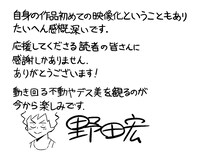 自身の作品初めての映像化ということもあり
たいへん感慨深いです。
応援してくださる読者の皆さんに
感謝しかありません。
ありがとうございます!
動き回る不動やデス美を観るのが
今から楽しみです。
野田宏